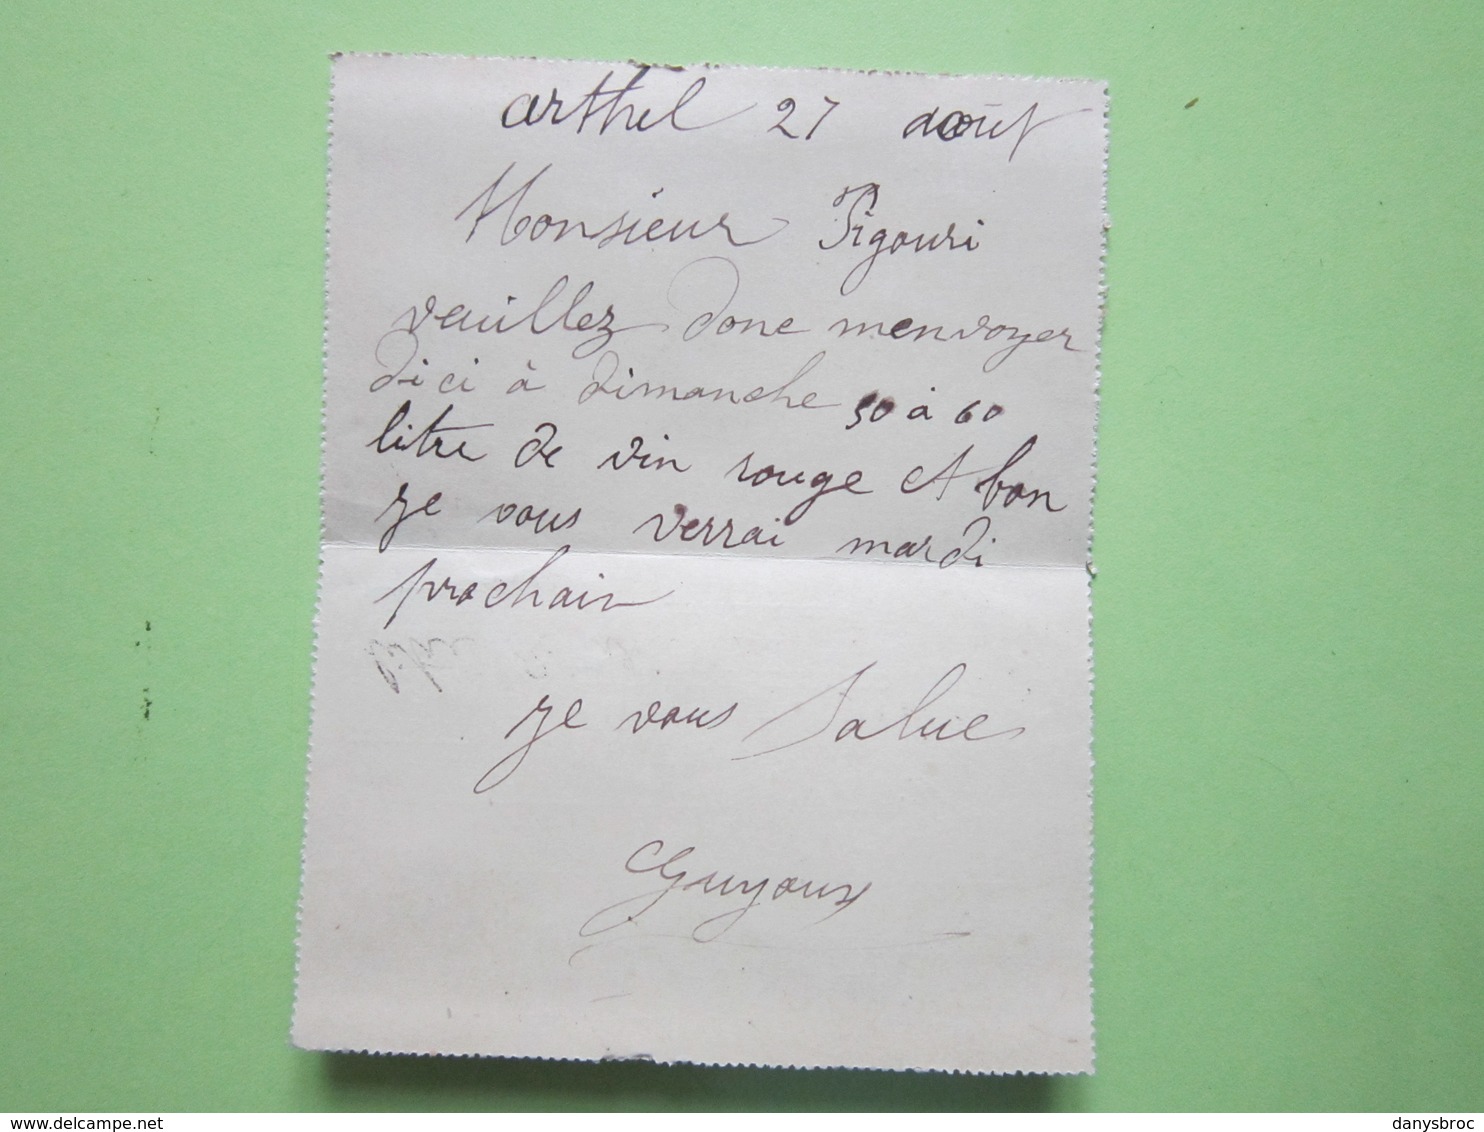 arthel 27 août
Monsieur Pigouri
veuillez donc menvoyer
dici à dimanche 50 à 60
litre de vin rouge et bon
je vous verrai mardi
prochain
je vous salue
Guyoux
delcampe.net
danysbroc